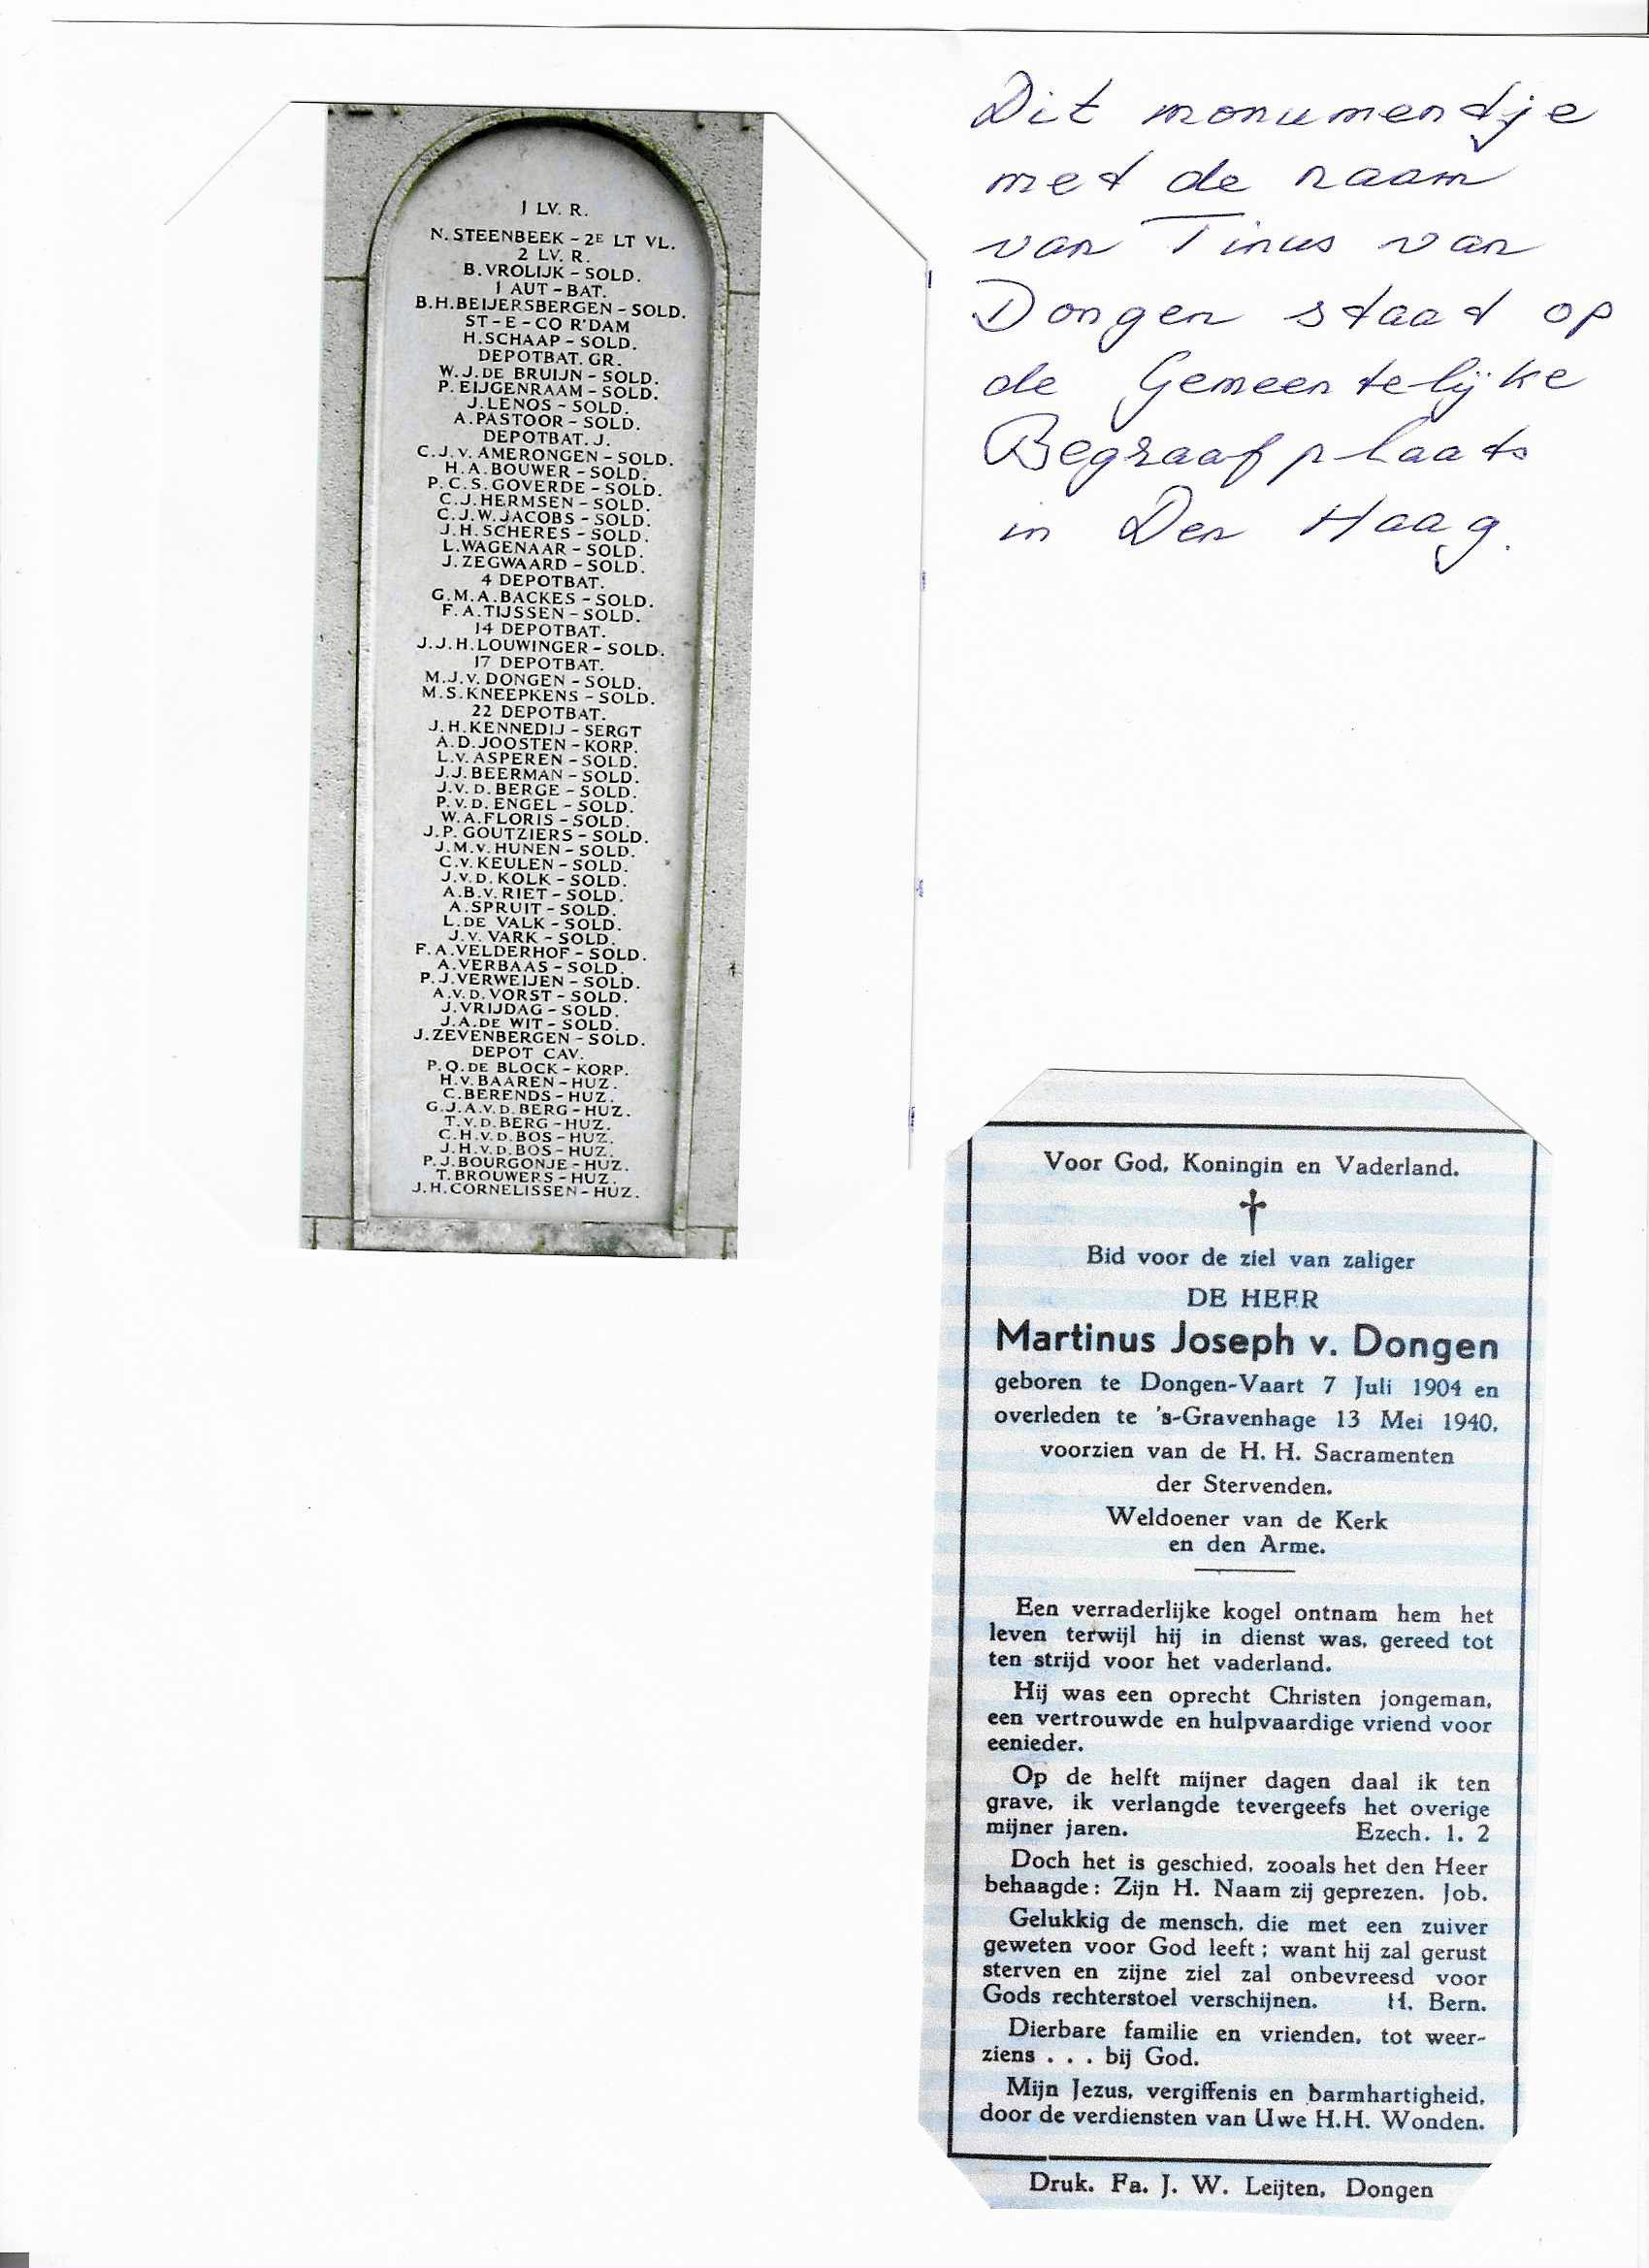 1 LV. R.
N. STEENBEEK - 2E LT VL.
2 LV. R.
B. VROLIJK - SOLD.
1 AUT - BAT.
B.H. BEIJERSBERGEN - SOLD.
ST - E - CO R'DAM
H. SCHAAP - SOLD.
DEPOTBAT. GR.
W.J. DE BRUIJN - SOLD.
P. EIJGENRAAM - SOLD.
J. LENOS - SOLD.
A. PASTOOR - SOLD.
DEPOTBAT. J.
C.J. v. AMERONGEN - SOLD.
H.A. BOUWER - SOLD.
P.C.S. GOVERDE - SOLD.
C.J. HERMSEN - SOLD.
C.J.W. JACOBS - SOLD.
J.H. SCHERES - SOLD.
L. WAGENAAR - SOLD.
J. ZEGWAARD - SOLD.
4 DEPOTBAT.
G.M.A. BACKES - SOLD.
F.A. TIJSSEN - SOLD.
14 DEPOTBAT.
J.J.H. LOUWINGER - SOLD.
17 DEPOTBAT.
M.J. v. DONGEN - SOLD.
M.S. KNEEPKENS - SOLD.
22 DEPOTBAT.
J.H. KENNEDIJ - SERGT
A.D. JOOSTEN - KORP.
L. v. ASPEREN - SOLD.
J.J. BEERMAN - SOLD.
J. v. D. BERGE - SOLD.
P. v. D. ENGEL - SOLD.
W.A. FLORIS - SOLD.
J.P. GOUTZIERS - SOLD.
J.M. v. HUNEN - SOLD.
C. v. KEULEN - SOLD.
J. v. D. KOLK - SOLD.
A.B. v. RIET - SOLD.
A. SPRUIT - SOLD.
L. DE VALK - SOLD.
J. v. VARK - SOLD.
F.A. VELDERHOF - SOLD.
A. VERBAAS - SOLD.
P.J. VERWEIJEN - SOLD.
A. v. D. VORST - SOLD.
J. VRIJDAG - SOLD.
J.A. DE WIT - SOLD.
J. ZEVENBERGEN - SOLD.
DEPOT CAV.
P.Q. DE BLOCK - KORP.
H. v. BAAREN - HUZ.
C. BERENDS - HUZ.
G.J.A. v. D. BERG - HUZ.
T. v. D. BERG - HUZ.
C.H. v. D. BOS - HUZ.
J.H. v. D. BOS - HUZ.
P.J. BOURGONJE - HUZ.
T. BROUWERS - HUZ.
J.H. CORNELISSEN - HUZ.
Dit monumendje
met de naam
van Tinus van
Dongen staat op
de Gemeentelijke
Begraafplaats
in Den Haag.
Voor God, Koningin en Vaderland.
†
Bid voor de ziel van zaliger
DE HEER
Martinus Joseph v. Dongen
geboren te Dongen-Vaart 7 Juli 1904 en
overleden te 's-Gravenhage 13 Mei 1940,
voorzien van de H. H. Sacramenten
der Stervenden.
Weldoener van de Kerk
en den Arme.
Een verraderlijke kogel ontnam hem het
leven terwijl hij in dienst was, gereed tot
ten strijd voor het vaderland.
Hij was een oprecht Christen jongeman,
een vertrouwde en hulpvaardige vriend voor
eenieder.
Op de helft mijner dagen daal ik ten
grave, ik verlangde tevergeefs het overige
mijner jaren. Ezech. 1. 2
Doch het is geschied, zooals het den Heer
behaagde: Zijn H. Naam zij geprezen. Job.
Gelukkig de mensch, die met een zuiver
geweten voor God leeft; want hij zal gerust
sterven en zijne ziel zal onbevreesd voor
Gods rechterstoel verschijnen. H. Bern.
Dierbare familie en vrienden, tot weer-
ziens . . . bij God.
Mijn Jezus, vergiffenis en barmhartigheid,
door de verdiensten van Uwe H.H. Wonden.
Druk. Fa. J. W. Leijten, Dongen